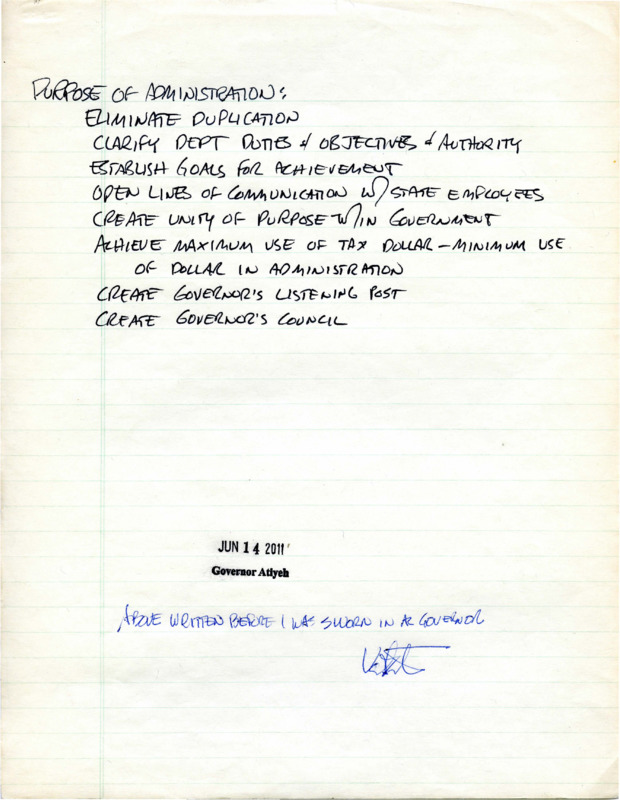 PURPOSE OF ADMINISTRATION:
ELIMINATE DUPLICATION
CLARIFY DEPT DUTIES & OBJECTIVES & AUTHORITY
ESTABLISH GOALS FOR ACHIEVEMENT
OPEN LINES OF COMMUNICATION W/ STATE EMPLOYEES
CREATE UNITY OF PURPOSE W/IN GOVERNMENT
ACHIEVE MAXIMUM USE OF TAX DOLLAR – MINIMUM USE
OF DOLLAR IN ADMINISTRATION
CREATE GOVERNOR'S LISTENING POST
CREATE GOVERNOR'S COUNCIL
JUN 14 2011
Governor Atiyeh
ABOVE WRITTEN BEFORE I WAS SWORN IN AS GOVERNOR